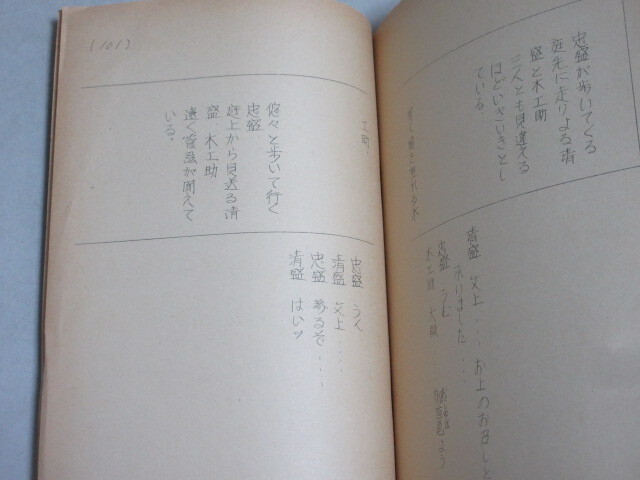 忠盛が歩いてくる
庭先に走りよる清
盛と木工助
三人とも見違える
ほどいさいきとし
ている。
清盛 父上....お上のお召しと
忠盛 うむ
木工助
(101)
工助。
悠々と歩いて行く
忠盛
庭上から見送る清
盛 木工助
遠く管弦が聞えて
いる。
忠盛 うん
清盛 父上....
忠盛 参るぞ....
清盛 はいッ